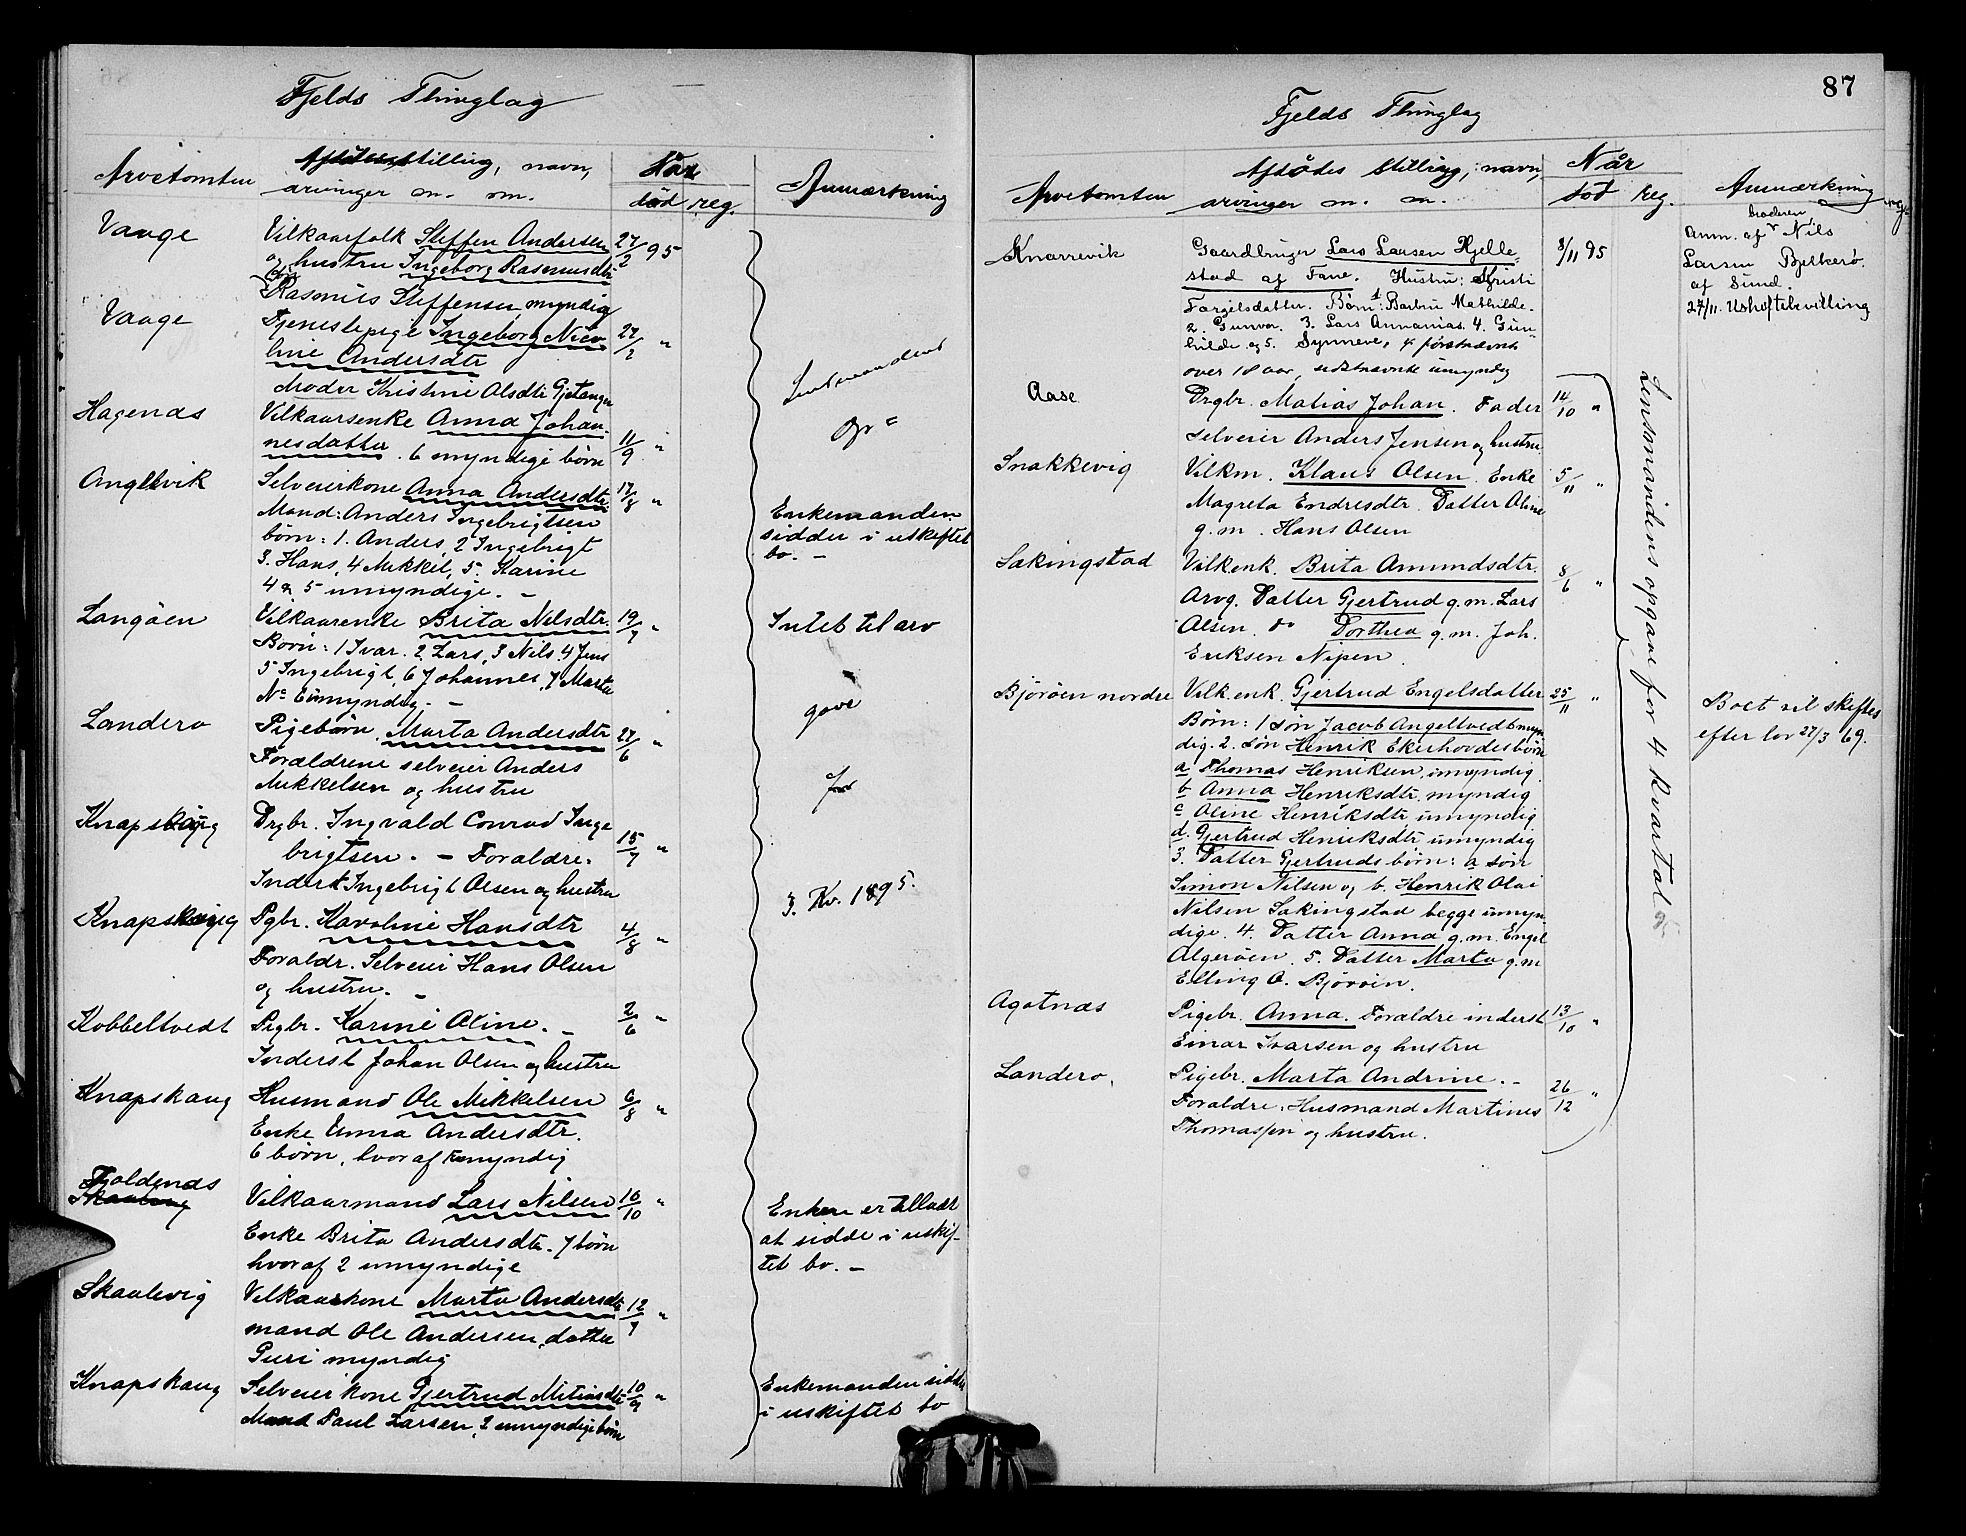 Fjelds Thinglag
Arvetomten
Afdødes stilling, navn,
arvinger m. m.
Når
død reg.
Anmærkning
Vange
Vilkaarfolk Steffen Andersen 27/2 95
og hustru Ingeborg Rasmusdtr
Rasmus Steffensen, myndig
Vange
Tjenestepige Ingeborg Niko-
line Andersdtr 27/2 "
Moder Kristine Olsdtr Gjetanger
Hagenæs
Vilkaarsenke Anna Johan-
nesdatter. 6 myndige børn 11/9 "
Angelvik
Selveierkone Anna Andersdtr 17/8 "
Mand: Anders Ingebrigtsen
børn: 1. Anders, 2 Ingebrigt
3. Hans, 4 Mikkel, 5. Karine
4 & 5 umyndige. -
Enkemanden
sidder i uskiftet
bo. -
Langøen
Vilkaarenke Brita Nilsdtr. 19/7 "
Børn: 1 Ivar. 2. Lars, 3 Nils 4 Jens
5 Ingebrigt, 6 Johannes, 7 Marta
No 6 umyndig. -
Intet til arv
Landero
Pigebørn, Marta Andersdtr 27/6 "
Forældrene selveier Anders
Mikkelsen og hustru
Knapskaug
Drgbr. Ingvald Conrad Inge
brigtsen. - Forældre: 15/7 "
Inderst Ingebrigt Olsen og hustru
Knapskaug
Pgbr. Karoline Hansdtr 4/8 "
Forældr. Selveier Hans Olsen
og hustru. -
Kobbeltvedt
Pigbr. Karine Oline. - 2/6 "
Inderst Johan Olsen og hustru
Knapskaug
Husmand Ole Mikkelsen 6/8 "
Enke Anna Andersdtr.
6 børn, hvoraf myndig
Foldenæs
Vilkaarmand Lars Nilsen 16/10 "
Enke Brita Andersdtr. 7 børn
hvoraf 2 umyndige
Enken er tilladt
at sidde i uskif-
tet bo. -
Skaalevig
Vilkaarkone Marta Andersdtr 12/9 "
mand Ole Andersen, datter
Guri myndig
Knapskaug
Selveierkone Gjertrud Mitiasdtr 10/9 "
Mand Paul Larsen, 2 umyndige børn
Enkemanden sidder
i uskiftet bo
Lensmandens
opgave
for
3. Kv. 1895.
87
Fjelds Thinglag
Arvetomten
Afdødes stilling, navn,
arvinger m. m.
Når
død reg.
Anmærkning
Knarrevik
Gaardbruger Lars Larsen Hjelle- 8/11 95
stad af Fane. Hustru: Kristi
Torgelsdatter. Børn: 1 Barbru Mathilde.
2. Gunvor. 3. Lars Annanias. 4. Gun-
hilde og 5. Synneve, 4 førstnævnte
over 18 aar, sidstnævnte umyndig
broderen
Anm. af Nils
Larsen Bjelkerø.
af Sund.
27/11. Uskiftebevilling
Aase
Drgbr. Matias Johan. Fader 14/10 "
selveier Anders Jensen og hustru
Snekkevig
Vilkm. Klaus Olsen. Enke 5/11 "
Magreta Endresdtr. Datter Oline
g. m. Hans Olsen
Sekingstad
Vilkenk. Brita Amundsdtr. 8/6 "
Arvg. Datter Gjertrud g. m. Lars
Olsen. do Dorthea g. m. Joh.
Eriksen Nipen.
Bjørøen nordre
Vilk. enk. Gjertrud Engelsdatter 25/11 "
Børn: 1 søn Jacob Angeltvedt myn
dig. 2. søn Henrik Ekerhovdes børn
a Thomas Henriksen, umyndig
b Anna Henriksdtr. myndig
c Oline Henriksdtr umyndig
d. Gjertrud Henriksdtr umyndig
3. Datter Gjertruds børn: a søn
Simon Nilsen og b. Henrik Olai
Nilsen Sekingstad begge umyn-
dige. 4. Datter Anna g. m. Engel
Algerøen. 5. Datter Marta g. m
Elling O. Bjørøen.
Boet vil skiftes
efter lov 27/3 69.
Agotnæs
Pigebr. Anna. Forældre inderst 13/10 "
Einar Ivarsen og hustru
Landero.
Pigebr. Marta Andrine. - 26/12 "
Forældre: Husmand Martines
Thomassen og hustru.
Lensmandens opgave for 4 kvartal 95